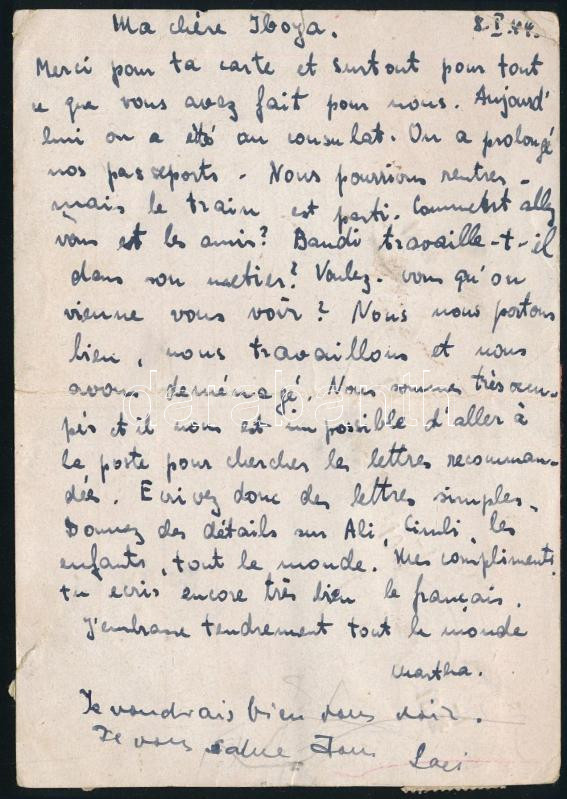 Ma chère Iboya. 8.I.44.
Merci pour ta carte et surtout pour tout
ce que vous avez fait pour nous. Aujourd'
hui on a été au consulat. On a prolongé
nos passeports - Nous pourrions rentrer -
mais le train est parti. Comment allez
vous et les amis? Bandi travaille-t-il
dans son metier? Voulez-vous qu'on
vienne vous voir? Nous nous portons
bien, nous travaillons et nous
avons deménagé. Nous sommes très occu-
pés et il nous est impossible d'aller à
la poste pour chercher les lettres recomman-
dées. Ecrivez donc des lettres simples.
Donnez des détails sur Ali, Cimbi, les
enfants, tout le monde. Mes compliments,
tu ecris encore très bien le français.
J'embrasse tendrement tout le monde
Martha.
Je voudrais bien vous voir.
Je vous salue Laci
darabanth